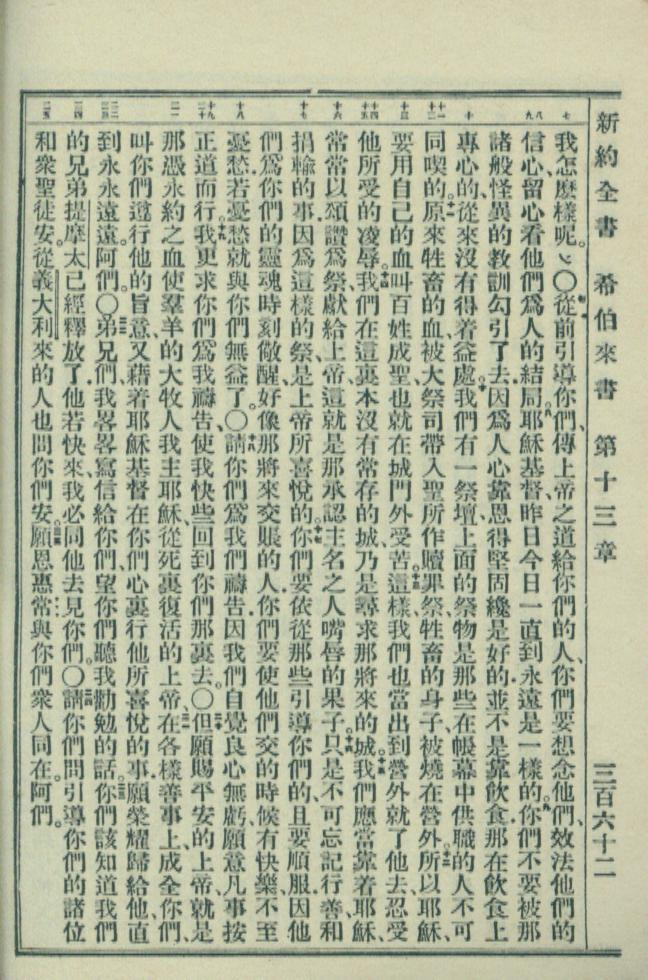 新約全書 希伯來書 第十三章 三百六十二
七 我怎麼樣呢。〇從前引導你們、傳上帝之道給你們的人、你們要想念他們、效法他們的
八 九 信心、留心看他們爲人的結局。八耶穌基督、昨日今日一直到永遠是一樣的。九你們不要被那
諸般怪異的教訓勾引了去、因爲人心靠恩得堅固纔是好的、並不是靠飲食、那在飲食上
十 專心的、從來沒有得着益處。十我們有一祭壇、上面的祭物、是那些在帳幕中供職的人不可
十一 十二 同喫的。十一原來牲畜的血、被大祭司帶入聖所作贖罪祭、牲畜的身子、被燒在營外。十二所以耶穌、
十三 要用自己的血叫百姓成聖、也就在城門外受苦。十三這樣、我們也當出到營外就了他去、忍受
十四 十五 他所受的凌辱。十四我們在這裏本沒有常存的城、乃是尋求那將來的城。十五我們應當靠着耶穌、
十六 常常以頌讚爲祭、獻給上帝、這就是那承認主名之人嘴唇的果子。十六只是不可忘記行善和
十七 捐輸的事、因爲這樣的祭、是上帝所喜悅的。十七你們要依從那些引導你們的、且要順服、因他
們爲你們的靈魂時刻儆醒、好像那將來交賬的人、你們要使他們交的時候有快樂、不至
十八 憂愁、若憂愁就與你們無益了。〇十八請你們爲我們禱告、因我們自覺良心無虧、願意凡事按
十九 二十 正道而行。十九我更求你們爲我禱告、使我快些回到你們那裏去。〇二十但願賜平安的上帝、就是
那憑永約之血使羣羊的大牧人我主耶穌、從死裏復活的上帝、二一在各樣善事上成全你們、
二一 叫你們遵行他的旨意、又藉着耶穌基督在你們心裏行他所喜悅的事、願榮耀歸給他、直
二二 二三 到永永遠遠。阿們。〇二二弟兄們、我畧畧寫信給你們、望你們聽我勸勉的話。二三你們該知道我們
二四 的兄弟提摩太已經釋放了、他若快來、我必同他去見你們。〇二四請你們問引導你們的諸位
二五 和衆聖徒安。從義大利來的人也問你們安。二五願恩惠常與你們衆人同在。阿們。